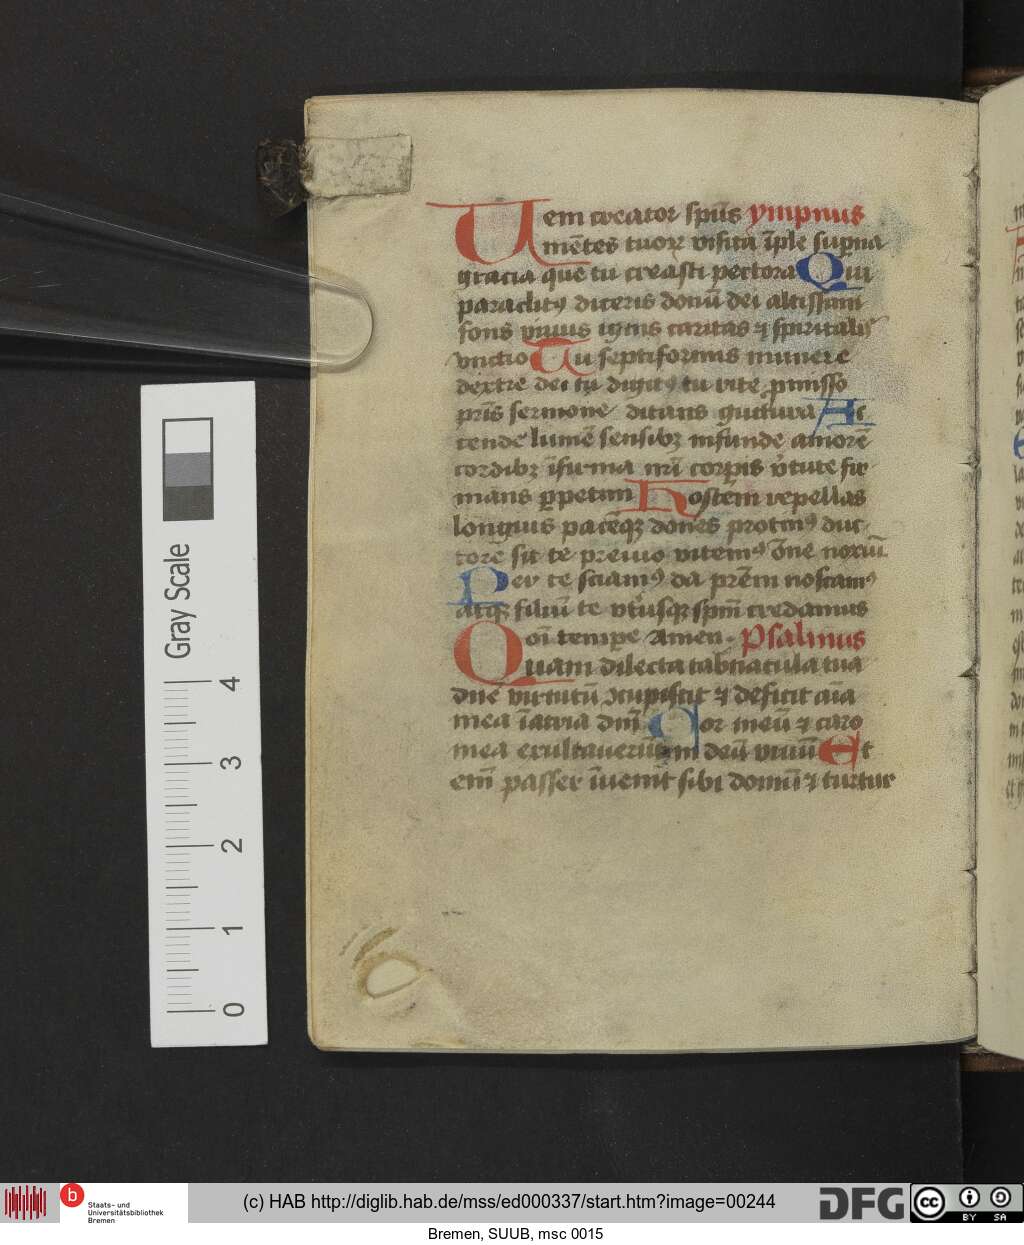 Uem creator sp̄us ympnus
mētes tuoꝝ visita īple sup̄na
gracia que tu creasti pectora Qui
paraclitꝰ diceris donū dei altissimi
fons viuus ignis caritas ⁊ spiritalis
vnctio Tu septiformis munere
dextre dei tu digitꝰ tu rite ꝓmisso
pr̄is sermone ditans guttura Ac
tende lumē sensibꝫ infunde amorē
cordibꝫ īfirma nr̄i corꝑis v̓tute fir
mans ꝑpetim Hostem repellas
longius pacēqꝫ dones protinꝰ duc
tore sic te preuio vitemꝰ o̅ne noxiū
Per te sciamꝰ da pr̄em noscamꝰ
atqꝫ filiū te vtiusqꝫ sp̄m credamus
Oi temꝑe Amen. Psalmus
Quam dilecta tabnacula tua
dn̄e virtutū ꝯcupiscit ⁊ deficit aīa
mea ī atria dn̄i Cor meū ⁊ caro
mea exultauerūt in deū viuū Et
em̄ passer īuenit sibi domū ⁊ turtur
Gray Scale
4
3
2
1
0
b
Staats- und
Universitätsbibliothek
Bremen
(c) HAB http://diglib.hab.de/mss/ed000337/start.htm?image=00244
DFG
cc
BY SA
Bremen, SUUB, msc 0015